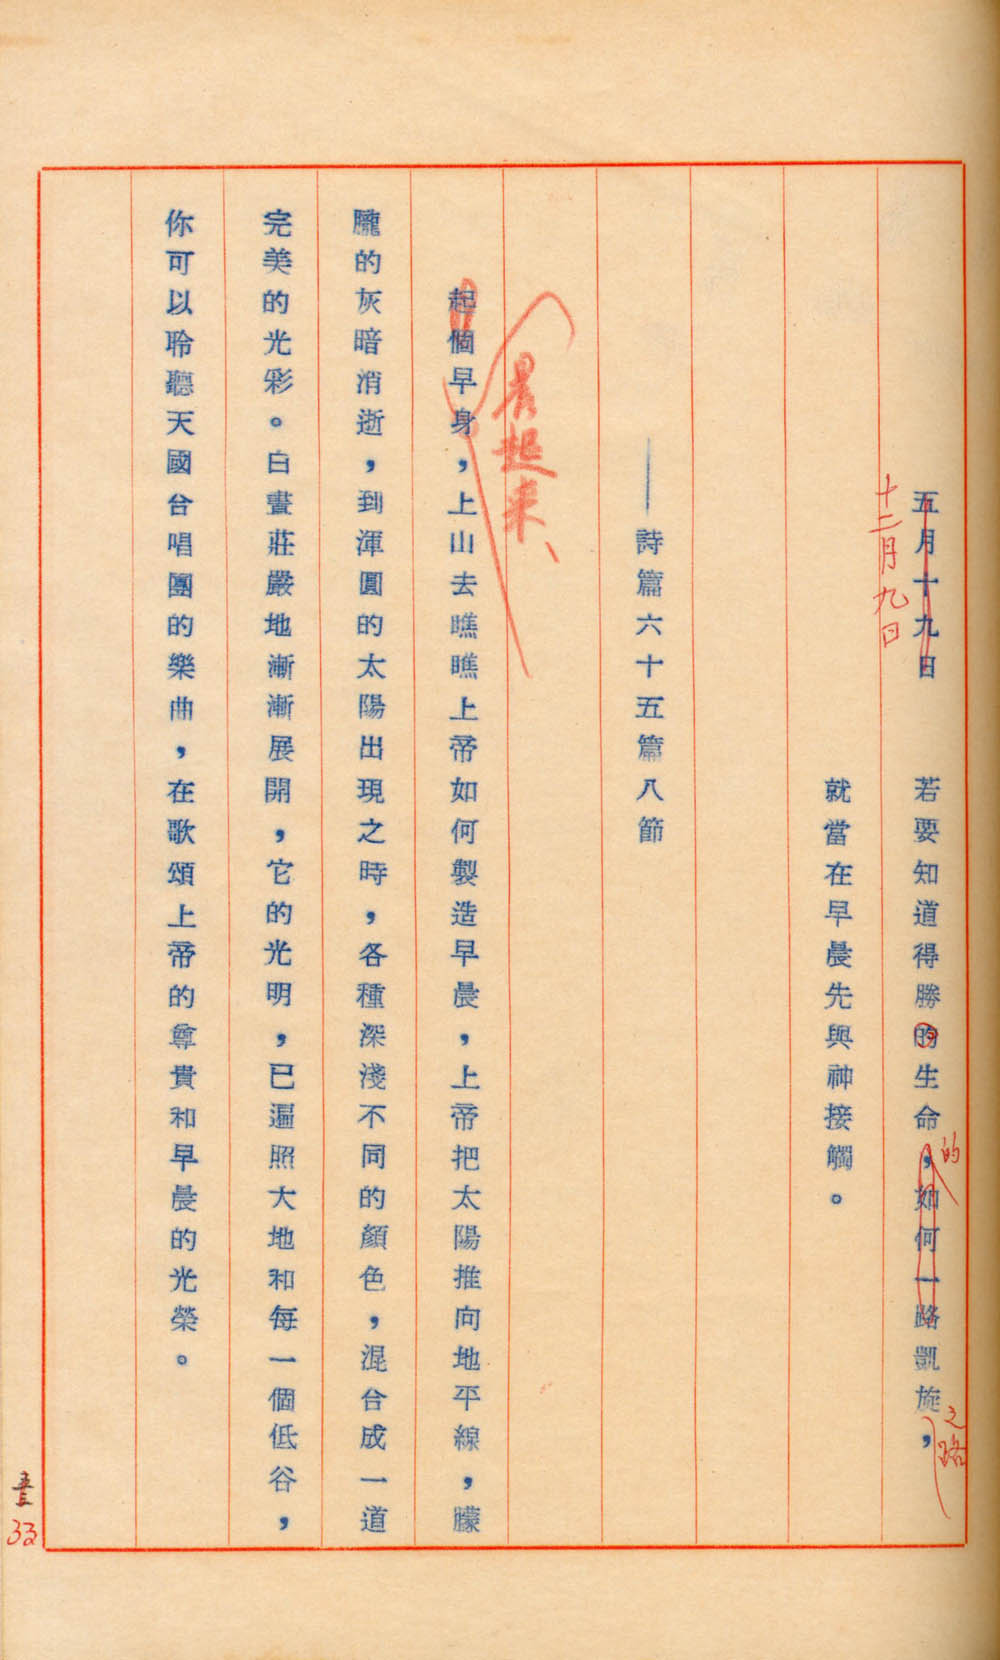 五月十九日　若要知道得勝的生命，如何一路凱旋，
的
之路
十二月九日
就當在早晨先與神接觸。
——詩篇六十五篇八節
晨起来、
起個早身，上山去瞧瞧上帝如何製造早晨，上帝把太陽推向地平線，朦
朧的灰暗消逝，到渾圓的太陽出現之時，各種深淺不同的顏色，混合成一道
完美的光彩。白晝莊嚴地漸漸展開，它的光明，已遍照大地和每一個低谷，
你可以聆聽天國合唱團的樂曲，在歌頌上帝的尊貴和早晨的光榮。
33